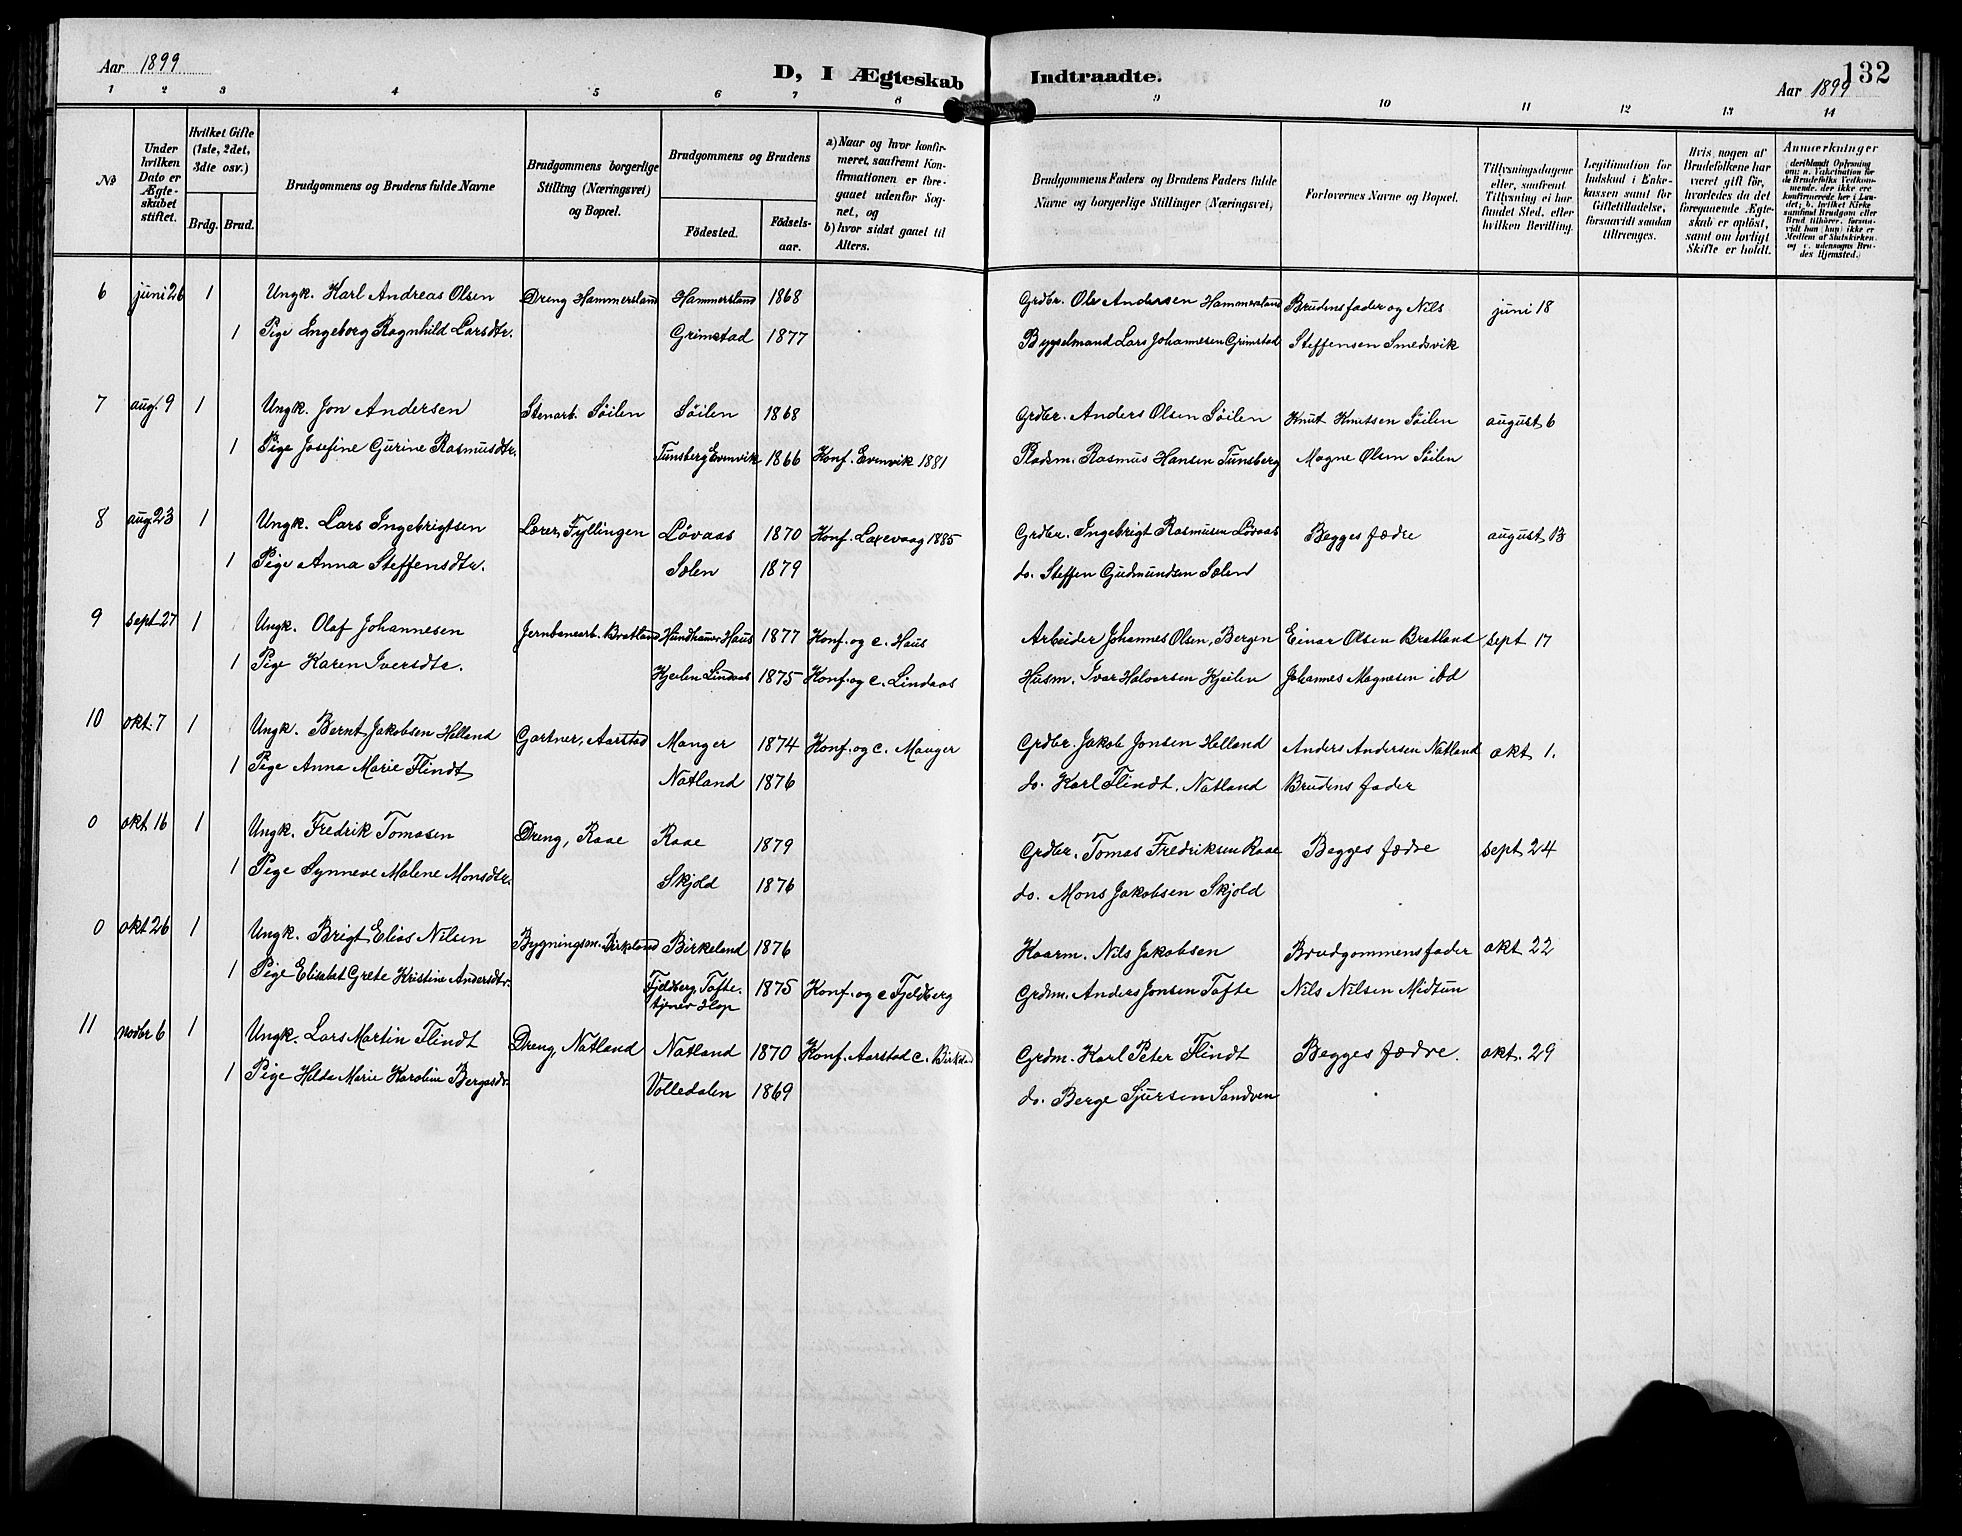 Aar 1899 D, I Ægteskab Indtraadte. Aar 1899 132
1 2 3 4 5 6 7 8 9 10 11 12 13 14
No
Under hvilken Dato er Ægteskabet stiftet.
Hvilket Gifte (1ste, 2det, 3die osv.)
Brdg. Brud.
Brudgommens og Brudens fulde Navne
Brudgommens borgerlige Stilling (Næringsvei) og Bopæl.
Brudgommens og Brudens
Fødested. Fødselsaar.
a) Naar og hvor konfirmeret, saafremt Konfirmationen er foregaaet udenfor Sognet, og
b) hvor sidst gaaet til Alters.
Brudgommens Faders og Brudens Faders fulde Navne og borgerlige Stillinger (Næringsvei)
Forlovernes Navne og Bopæl.
Tillysningsdagene eller, saafremt Tillysning ei har fundet Sted, efter hvilken Bevilling.
Legitimation for Indskud i Enkekassen samt for Giftetilladelse, forsaavidt saadan tiltrænges.
Hvis nogen af Brudefolkene har været gift før, hvorledes da det foregaaende Ægteskab er opløst, samt om lovligt Skifte er holdt.
Anmærkninger
6 juni 26 1 Ungk. Karl Andreas Olsen Dreng Hammersland Hammersland 1868 Grdbr. Ole Andersen Hammersland Brudens fader og Nils juni 18
1 Pige Ingeborg Ragnhild Larsdtr. Grimstad 1877 Bygselmand Lars Johannesen Grimstad Steffensen Smedsvik
7 aug. 9 1 Ungk. Jon Andersen Stenarb. Søilen Søilen 1868 Grdbr. Anders Olsen Søilen Knut Knutsen Søilen august 6
1 Pige Josefine Gurine Rasmusdtr. Tunsberg Evenvik 1866 Konf. Evenvik 1881 Pladsm. Rasmus Hansen Tunsberg Magne Olsen Søilen
8 aug 23 1 Ungk. Lars Ingebrigtsen Lærer, Fyllingen Løvaas 1870 Konf. Laxevaag 1885 Grdbr. Ingebrigt Rasmusen Løvaas Begges fædre august 13
1 Pige Anna Steffensdtr. Sælen 1879 do. Steffen Gudmundsen Sælen
9 sept 27 1 Ungk. Olaf Johannesen Jernbanearb. Bratland Hundhauer Haus 1877 Konf. og c. Haus Arbeider Johannes Olsen, Bergen Einar Olsen Bratland sept 17
1 Pige Karen Iversdtr. Kjeilen Lindaas 1875 Konf. og c. Lindaas Husm. Ivar Halvorsen Kjeilen Johannes Magnesen ibd
10 okt. 7 1 Ungk. Bernt Jakobsen Helland Gartner, Aarstad Manger 1874 Konf. og c. Manger Grdbr. Jakob Jonsen Helland Anders Andersen Natland okt 1.
1 Pige Anna Marie Flindt Natland 1876 do. Karl Flindt, Natland Brudens fader
0 okt 16 1 Ungk. Fredrik Tomasen Dreng, Raae Raae 1879 Grdbr. Tomas Fredriksen Raae Begges fædre sept 24
1 Pige Synneve Malene Monsdtr. Skjold 1876 do. Mons Jakobsen Skjold
0 okt 26 1 Ungk. Brigt Elias Nilsen Bygningsm. Birkeland Birkeland 1876 Kaarm. Nils Jakobsen Brudgommens fader okt 22
1 Pige Elisabet Grete Kristine Andersdtr. Fjeldberg, Tofte. tjener Hop 1875 Konf. og c Fjeldberg Grdm. Anders Jonsen Tofte Nils Nilsen Midtun
11 novbr 6 1 Ungk. Lars Martin Flindt Dreng, Natland Natland 1870 Konf. Aarstad c. Birkeld Grdm. Karl Peter Flindt Begges fædre. okt. 29
1 Pige Hilda Marie Karoline Bergesdr. Volledalen 1869 do. Berge Sjursen Sandven